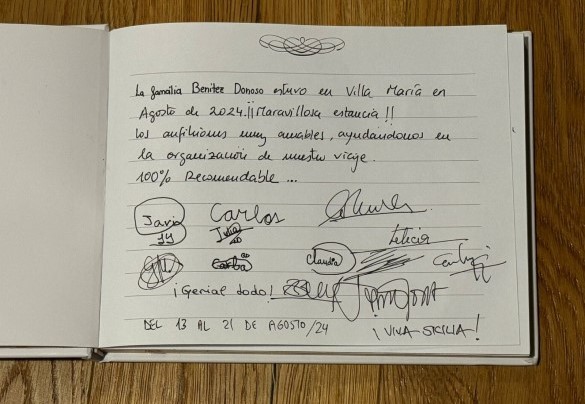 La familia Benitez Donoso estuvo en Villa María en
Agosto de 2024.¡¡Maravillosa estancia!!
Los anfitriones muy amables, ayudandonos en
la organización de nuestro viaje.
100% Recomendable ...
Javi Carlos
Julia Leticia
Claudia
¡Genial todo!
DEL 13 AL 21 DE AGOSTO/24 ¡VIVA SICILIA!